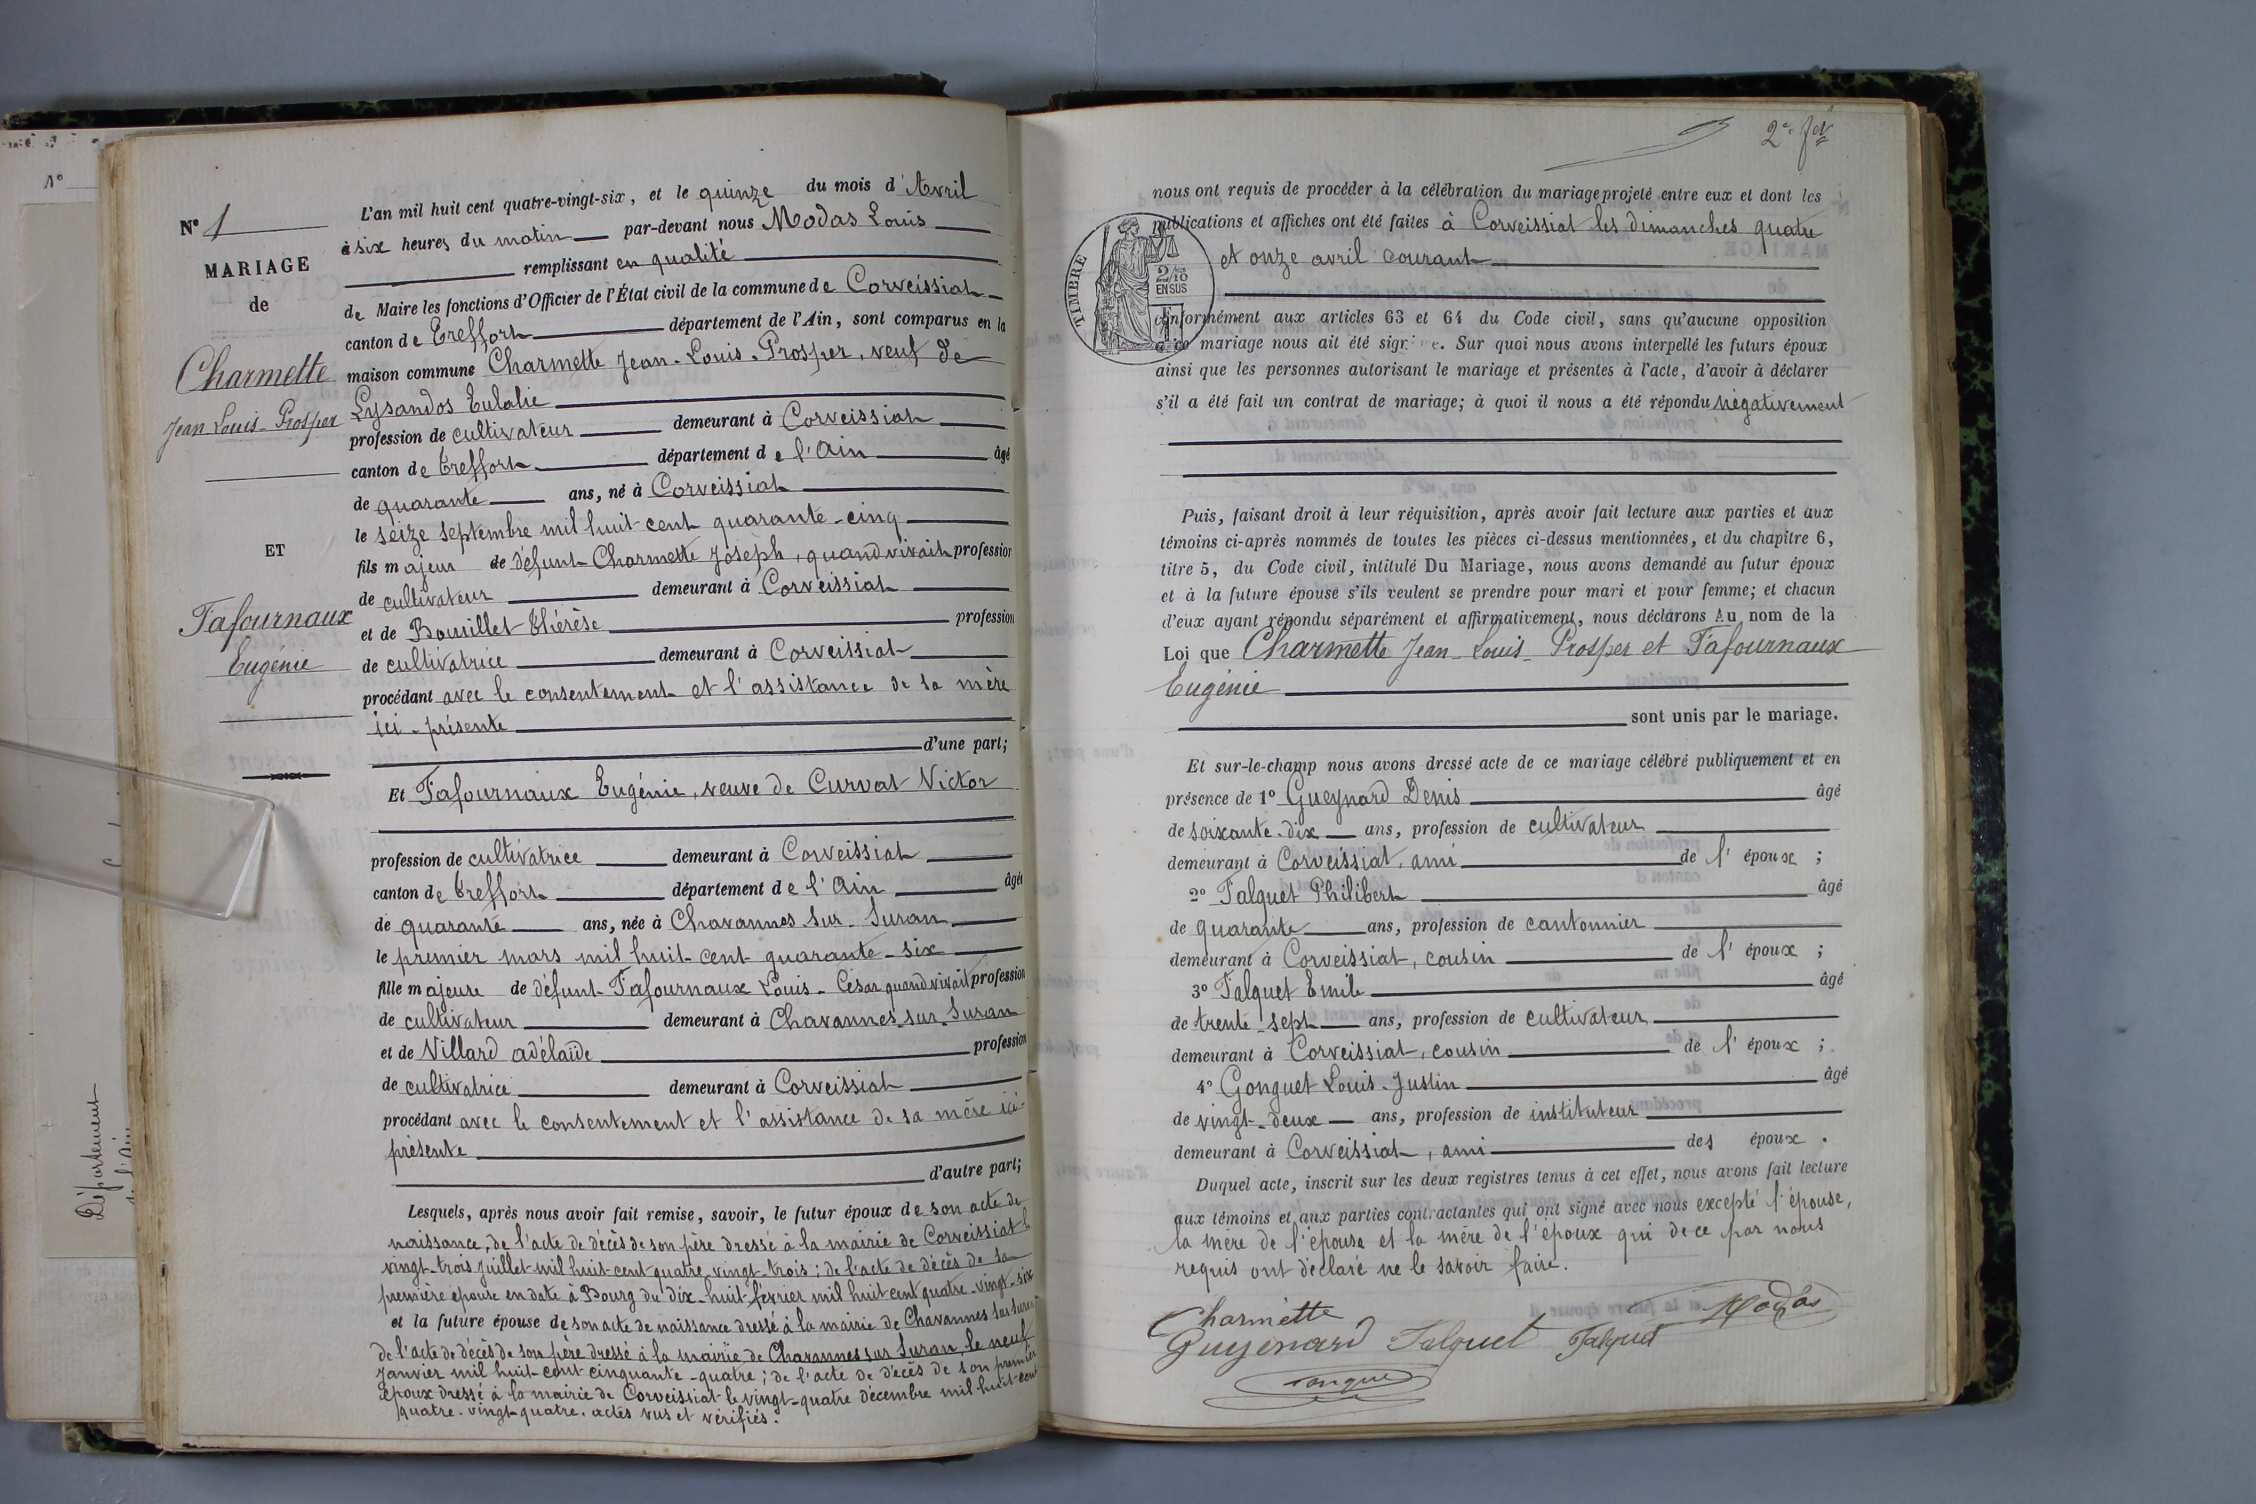 Nº 1
MARIAGE
de
Charmette
Jean Louis-Prosper
ET
Tafournaux
Eugénie
L'an mil huit cent quatre-vingt-six, et le quinze du mois d'Avril
à six heures du matin par-devant nous Modas Louis
remplissant en qualité
de Maire les fonctions d'Officier de l'État civil de la commune de Corveissiat
canton de Treffort département de l'Ain, sont comparus en la
maison commune Charmette Jean-Louis-Prosper, veuf de
Lysandos Eulalie
profession de cultivateur demeurant à Corveissiat
canton de Treffort département de l'Ain âgé
de quarante ans, né à Corveissiat
le seize septembre mil huit cent quarante-cinq
fils majeur de défunt Charmette Joseph, quand vivait profession
de cultivateur demeurant à Corveissiat
et de Bouillet Thérèse profession
de cultivatrice demeurant à Corveissiat
procédant avec le consentement et l'assistance de sa mère
ici-présente
d'une part;
Et Tafournaux Eugénie, veuve de Curvat Victor
profession de cultivatrice demeurant à Corveissiat
canton de Treffort département de l'Ain âgée
de quarante ans, née à Chavannes sur-Suran
le premier mars mil huit-cent quarante-six
fille majeure de défunt Tafournaux Louis-César quand vivait profession
de cultivateur demeurant à Chavannes-sur-Suran
et de Villard adélaïde profession
de cultivatrice demeurant à Corveissiat
procédant avec le consentement et l'assistance de sa mère ici-
présente
d'autre part;
Lesquels, après nous avoir fait remise, savoir, le futur époux de son acte de
naissance, de l'acte de décès de son père dressé à la mairie de Corveissiat le
vingt-trois juillet mil huit-cent quatre-vingt-trois; de l'acte de décès de sa
première épouse en date à Bourg du dix-huit février mil huit cent quatre-vingt-six
et la future épouse de son acte de naissance dressé à la mairie de Chavannes sur Suran
de l'acte de décès de son père dressé à la mairie de Chavannes sur Suran, le neuf
Janvier mil huit-cent cinquante-quatre; de l'acte de décès de son premier
époux dressé à la mairie de Corveissiat le vingt-quatre décembre mil huit-cent
quatre-vingt-quatre. actes vus et vérifiés.
Département
2e fet
nous ont requis de procéder à la célébration du mariage projeté entre eux et dont les
publications et affiches ont été faites à Corveissiat les dimanches quatre
et onze avril courant
TIMBRE
2/10
EN SUS
conformément aux articles 63 et 64 du Code civil, sans qu'aucune opposition
à ce mariage nous ait été signifiée. Sur quoi nous avons interpellé les futurs époux
ainsi que les personnes autorisant le mariage et présentes à l'acte, d'avoir à déclarer
s'il a été fait un contrat de mariage; à quoi il nous a été répondu négativement
Puis, faisant droit à leur réquisition, après avoir fait lecture aux parties et aux
témoins ci-après nommés de toutes les pièces ci-dessus mentionnées, et du chapitre 6,
titre 5, du Code civil, intitulé Du Mariage, nous avons demandé au futur époux
et à la future épouse s'ils veulent se prendre pour mari et pour femme; et chacun
d'eux ayant répondu séparément et affirmativement, nous déclarons Au nom de la
Loi que Charmette Jean-Louis-Prosper et Tafournaux
Eugénie
sont unis par le mariage.
Et sur-le-champ nous avons dressé acte de ce mariage célébré publiquement et en
présence de 1º Gueynard Denis âgé
de soixante-dix ans, profession de cultivateur
demeurant à Corveissiat, ami de l'époux ;
2º Falquet Philibert âgé
de quarante ans, profession de cantonnier
demeurant à Corveissiat, cousin de l'époux ;
3º Falquet Emile âgé
de trente-sept ans, profession de cultivateur
demeurant à Corveissiat, cousin de l'époux ;
4º Gonguet Louis-Justin âgé
de vingt-deux ans, profession de instituteur
demeurant à Corveissiat, ami des époux.
Duquel acte, inscrit sur les deux registres tenus à cet effet, nous avons fait lecture
aux témoins et aux parties contractantes qui ont signé avec nous excepté l'épouse,
la mère de l'épouse et la mère de l'époux qui de ce par nous
requis ont déclaré ne le savoir faire.
Charmette Modas
Gueynard Falquet Falquet